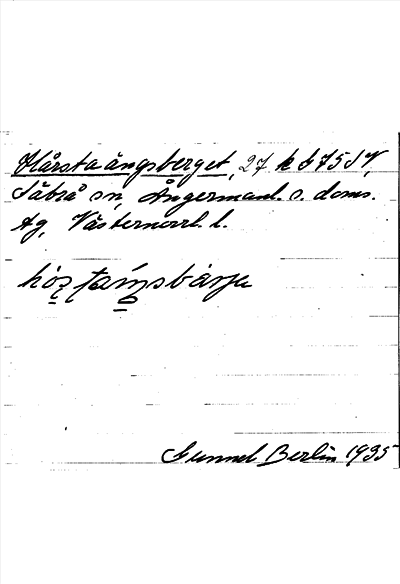 Hårstaängsberget, 27 k b 75 SV,
Säbrå sn, Ångermanl. s. doms.
Ag, Västernorrl. l.
Gunnel Berlin 1935